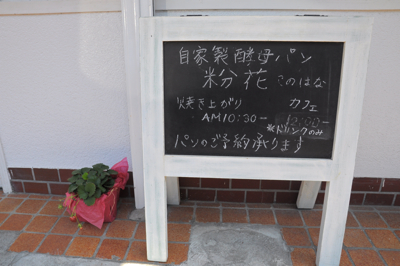 自家製酵母パン
粉花 このはな
焼き上がり カフェ
AM10:30- 10:00-
※ドリンクのみ
パンのご予約承ります